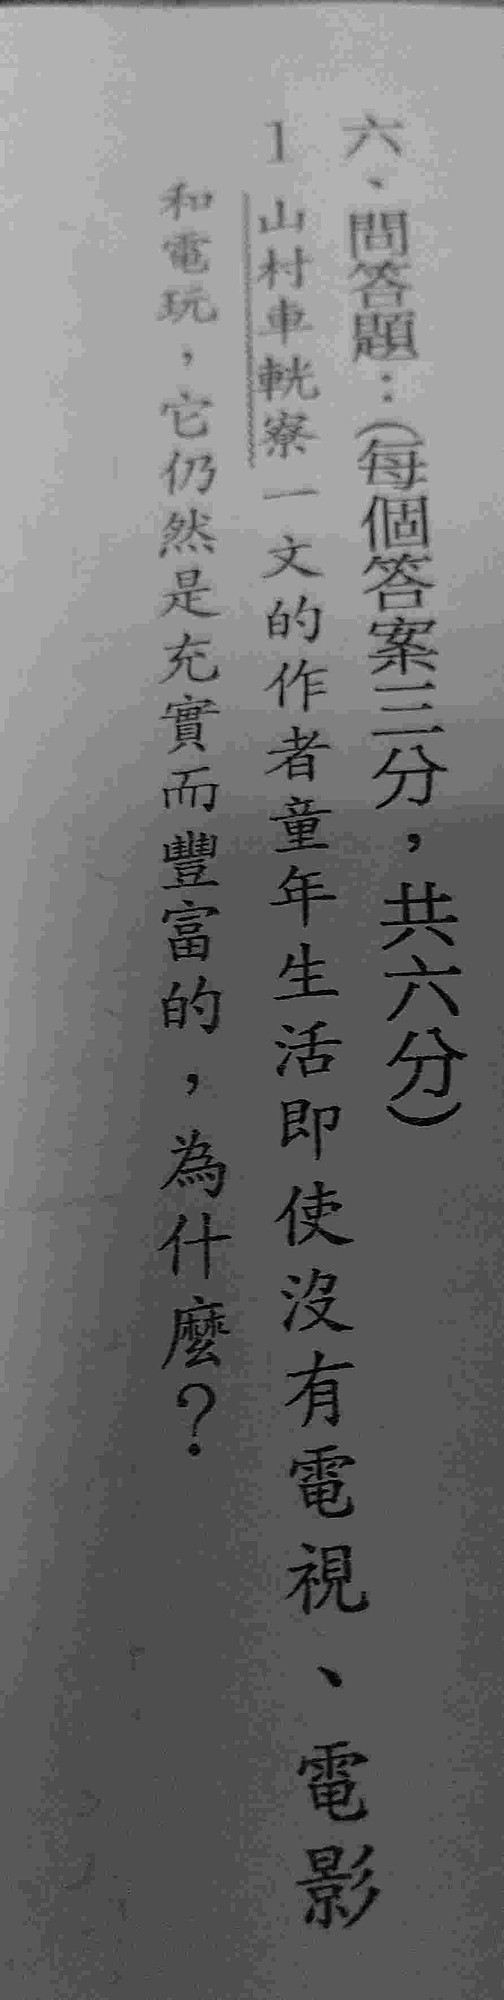 六、問答題：(每個答案三分，共六分)
1 山村車輄寮一文的作者童年生活即使沒有電視、電影
和電玩，它仍然是充實而豐富的，為什麼？